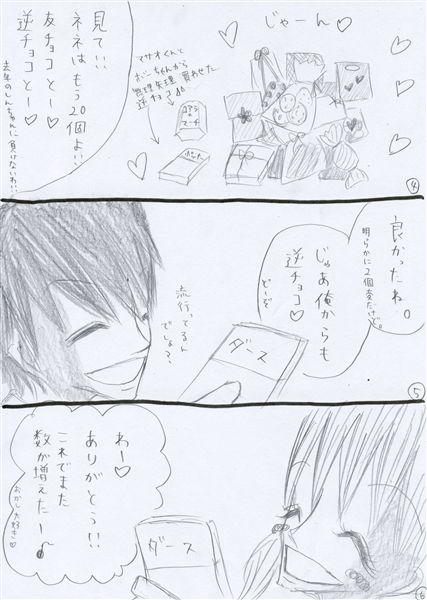 じゃーん♡
見て!!
ネネはもう20個よ!!
友チョコとー♡
逆チョコとー♡
去年のしんちゃんに負けないわ!!
マサオくんと
ボーちゃんから
無理矢理 買わせた
逆チョコ
コアラの
マーチ
ポッキー
④
良かったね。
明らかに2個変だけど。
じゃあ俺からも
逆チョコ♡
どーぞ
流行ってるん
でしょ?
ダース
⑤
わー♡
ありがとう!!
これでまた
数が増えたー♪
おかし大好き♡
ダース
⑥